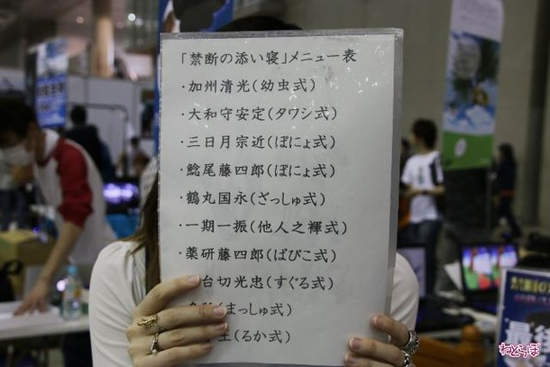 「禁断の添い寝」メニュー表
・加州清光(幼虫式)
・大和守安定(タワシ式)
・三日月宗近(ぽにょ式)
・鯰尾藤四郎(ぽにょ式)
・鶴丸国永(ざっしゅ式)
・一期一振(他人之褌式)
・薬研藤四郎(ばぴこ式)
台切光忠(すぐる式)
(まっしゅ式)
(るか式)
ねとらぼ